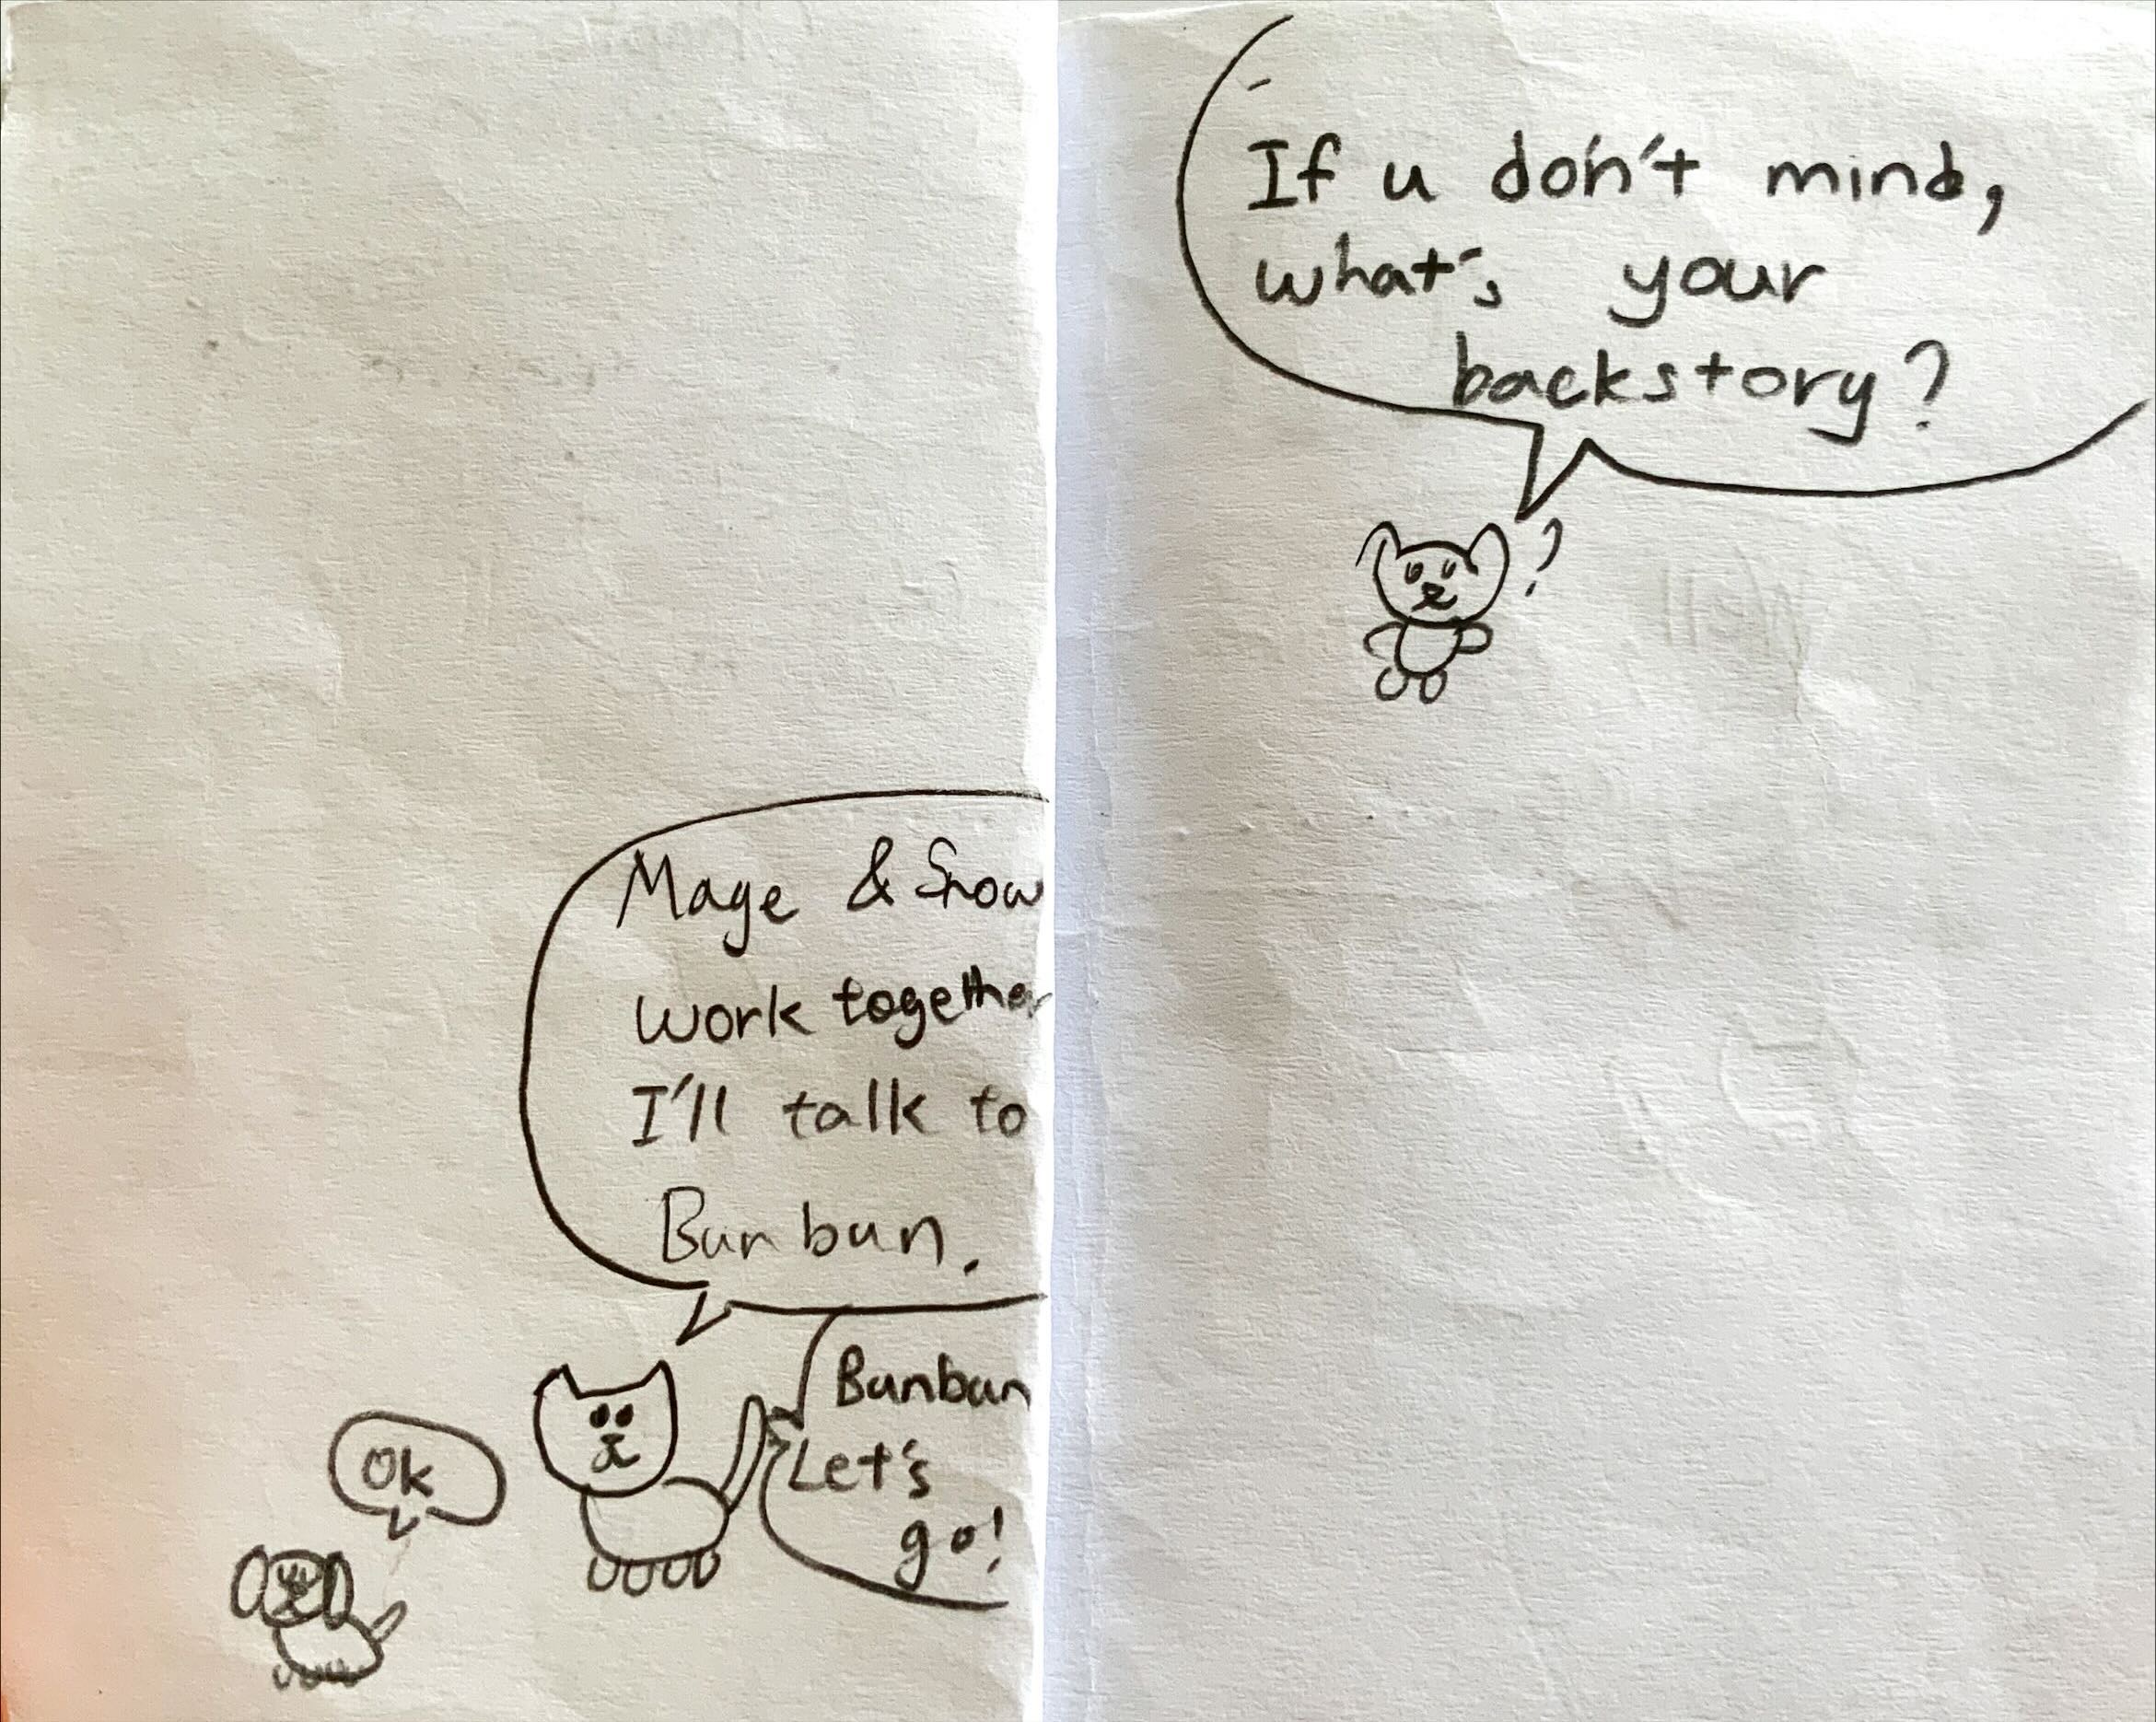 Mage & Snow
work together
I'll talk to
Bunbun.
Bunban
Let's
go!
Ok
If u don't mind,
what's your
backstory?
?